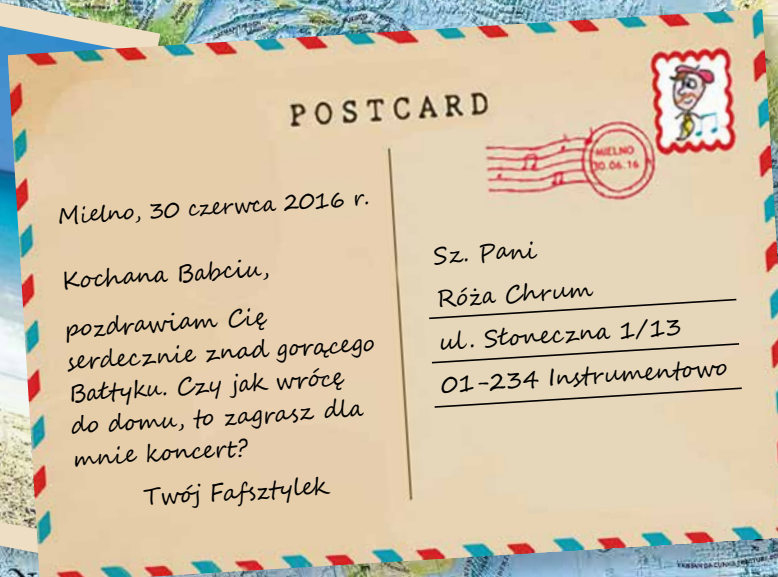 POSTCARD
MIELNO
30.06.16
Mielno, 30 czerwca 2016 r.
Kochana Babciu,
pozdrawiam Cię
serdecznie znad gorącego
Bałtyku. Czy jak wrócę
do domu, to zagrasz dla
mnie koncert?
Twój Fafsztylek
Sz. Pani
Róża Chrum
ul. Słoneczna 1/13
01-234 Instrumentowo